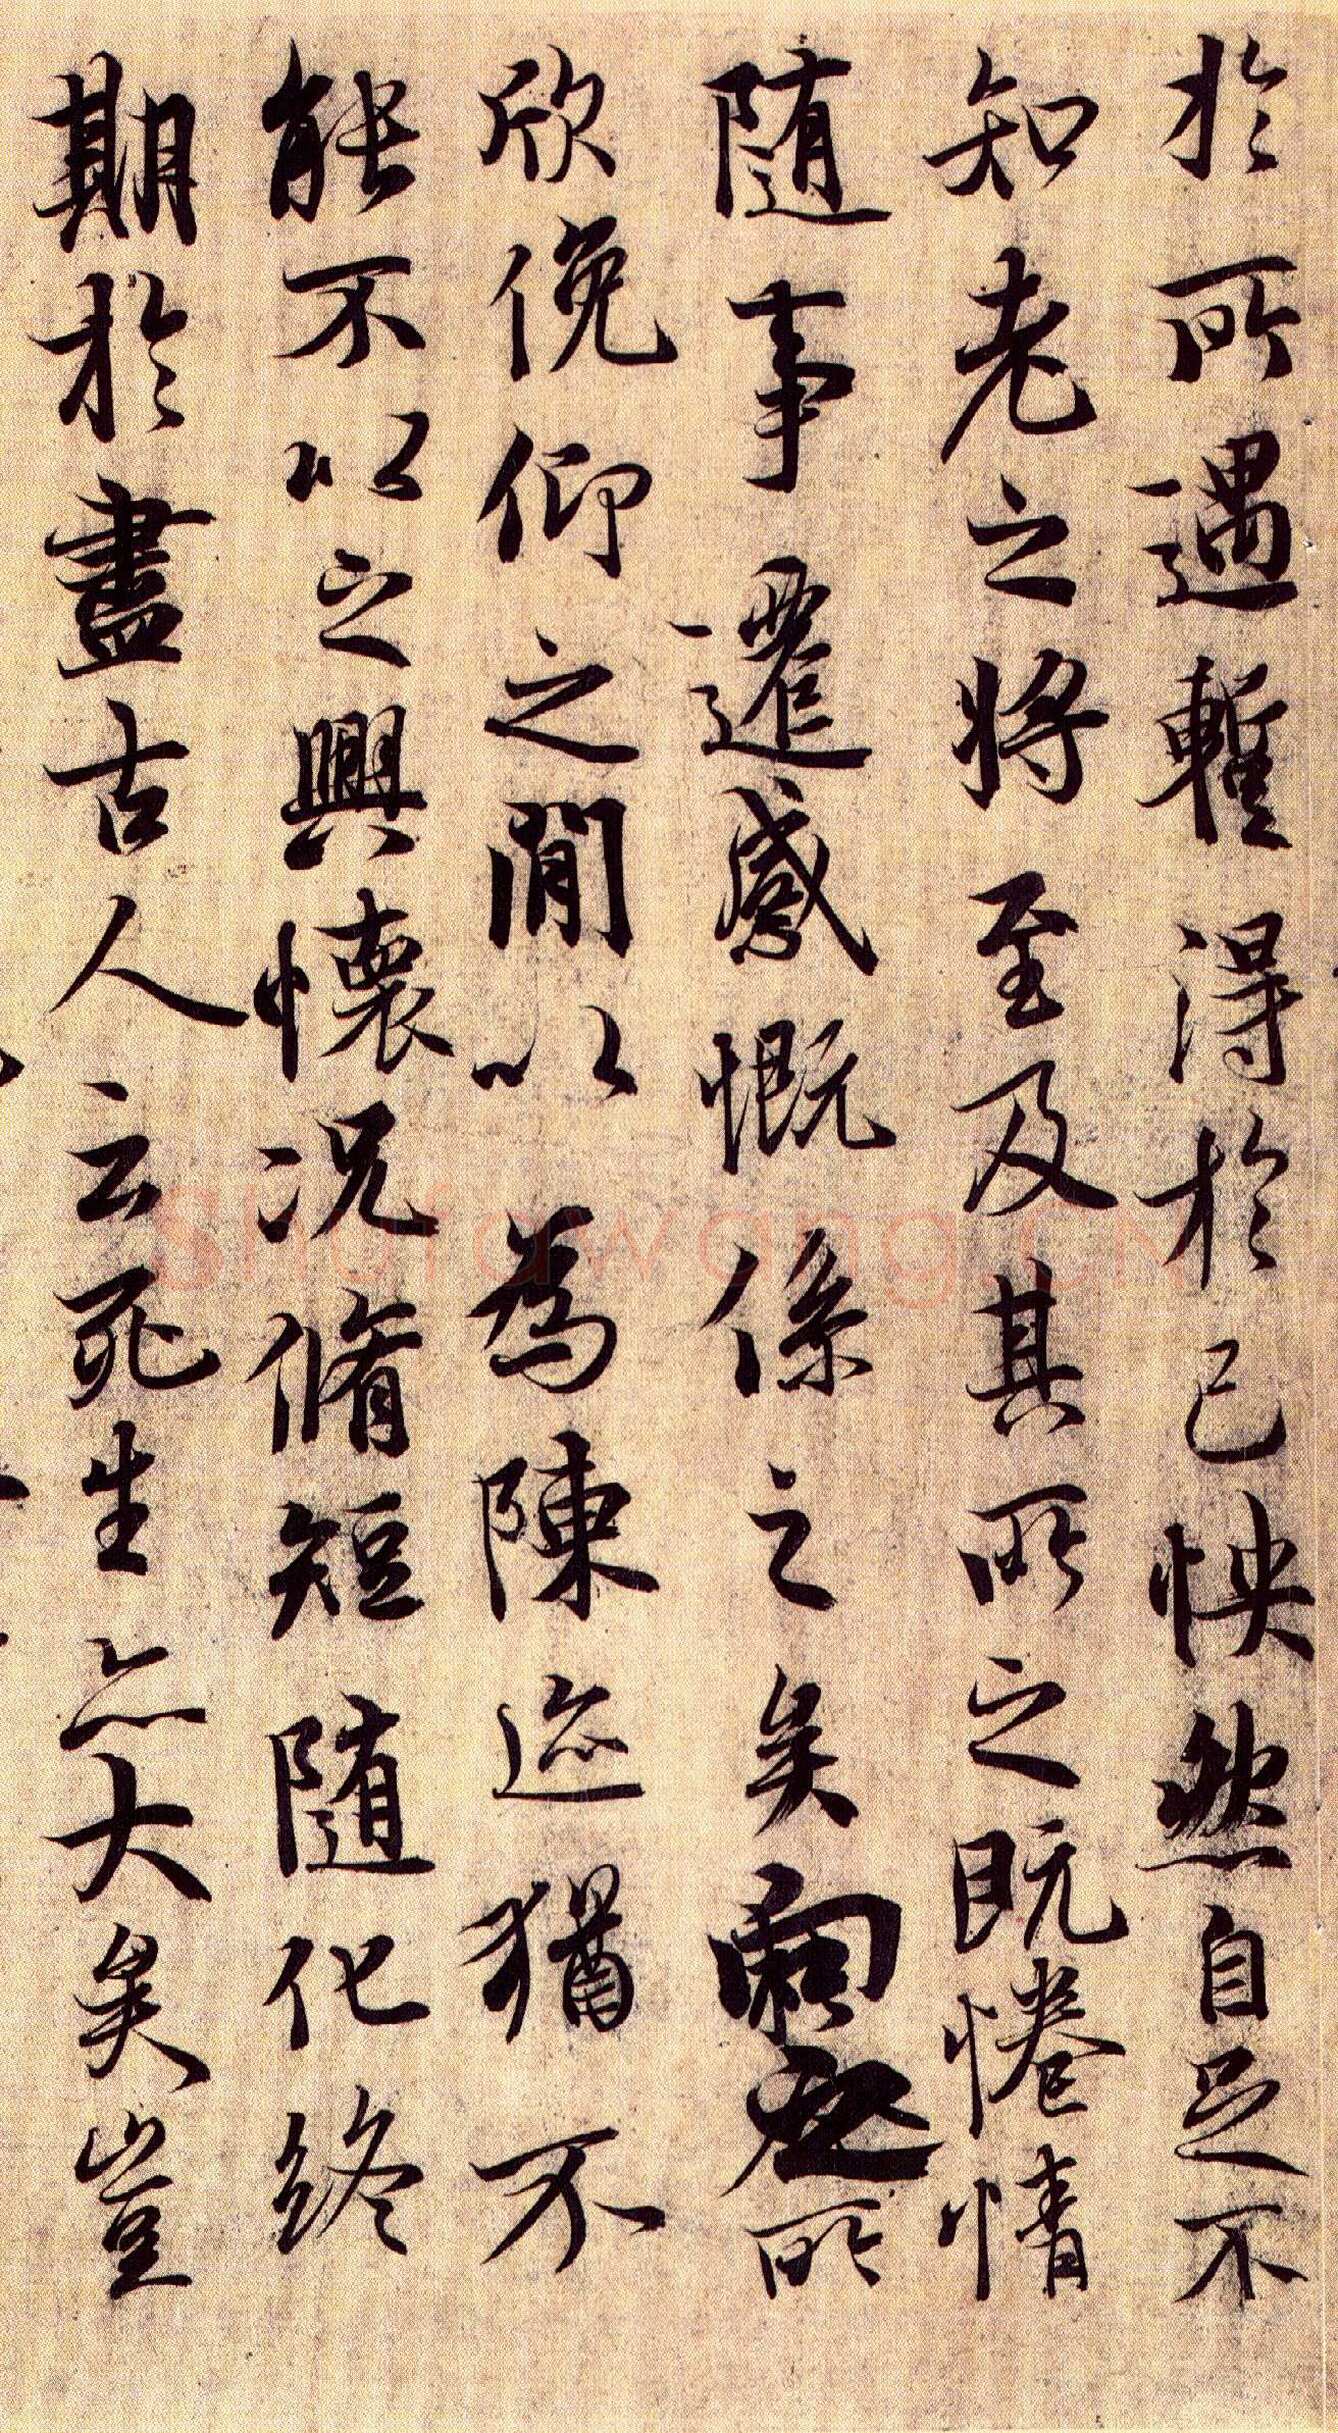 於所遇暫得於己怏然自足不
知老之将至及其所之既惓情
随事遷感慨係之矣向之所
欣俛仰之間以為陳迹猶不
能不以之興懷况脩短随化終
期於盡古人云死生亦大矣豈
Shufawang.CN